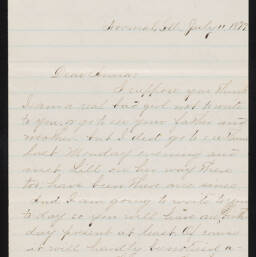 Normal, Ill, July 11, 18
Dear Anna:
I suppose you think
I am a real bad girl not to write
to you or go to see your father and
mother. But I did go to see them
last Monday evening and
met Lill on her way there
too, have been there once since.
And I am going to write to you
to day so you will have
day present at least. Of course
it will hardly